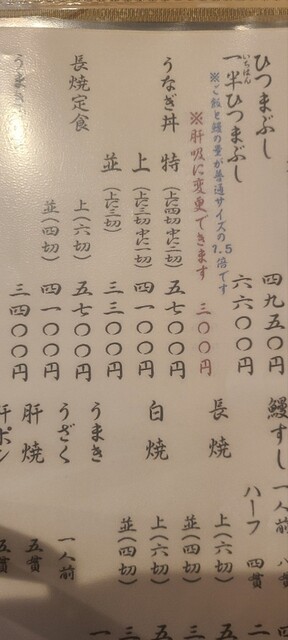 ひつまぶし 四九五〇円
一半ひつまぶし 六六〇〇円
いちはん
※ご飯と鰻の量が普通サイズの1.5倍です
※肝吸に変更できます 三〇〇円
うなぎ丼 特 (上に四切 中に二切) 五七〇〇円
上 (上に三切 中に一切) 四一〇〇円
並 (上に三切) 三三〇〇円
長焼定食 上 (六切) 五七〇〇円
並 (四切) 四一〇〇円
うまき 三四〇〇円
鰻すし 一人前
ハーフ 四貫
長焼 上 (六切)
並 (四切)
白焼 上 (六切)
並 (四切)
うまき
うざく 一人前
肝焼 五貫
肝ポン 五貫